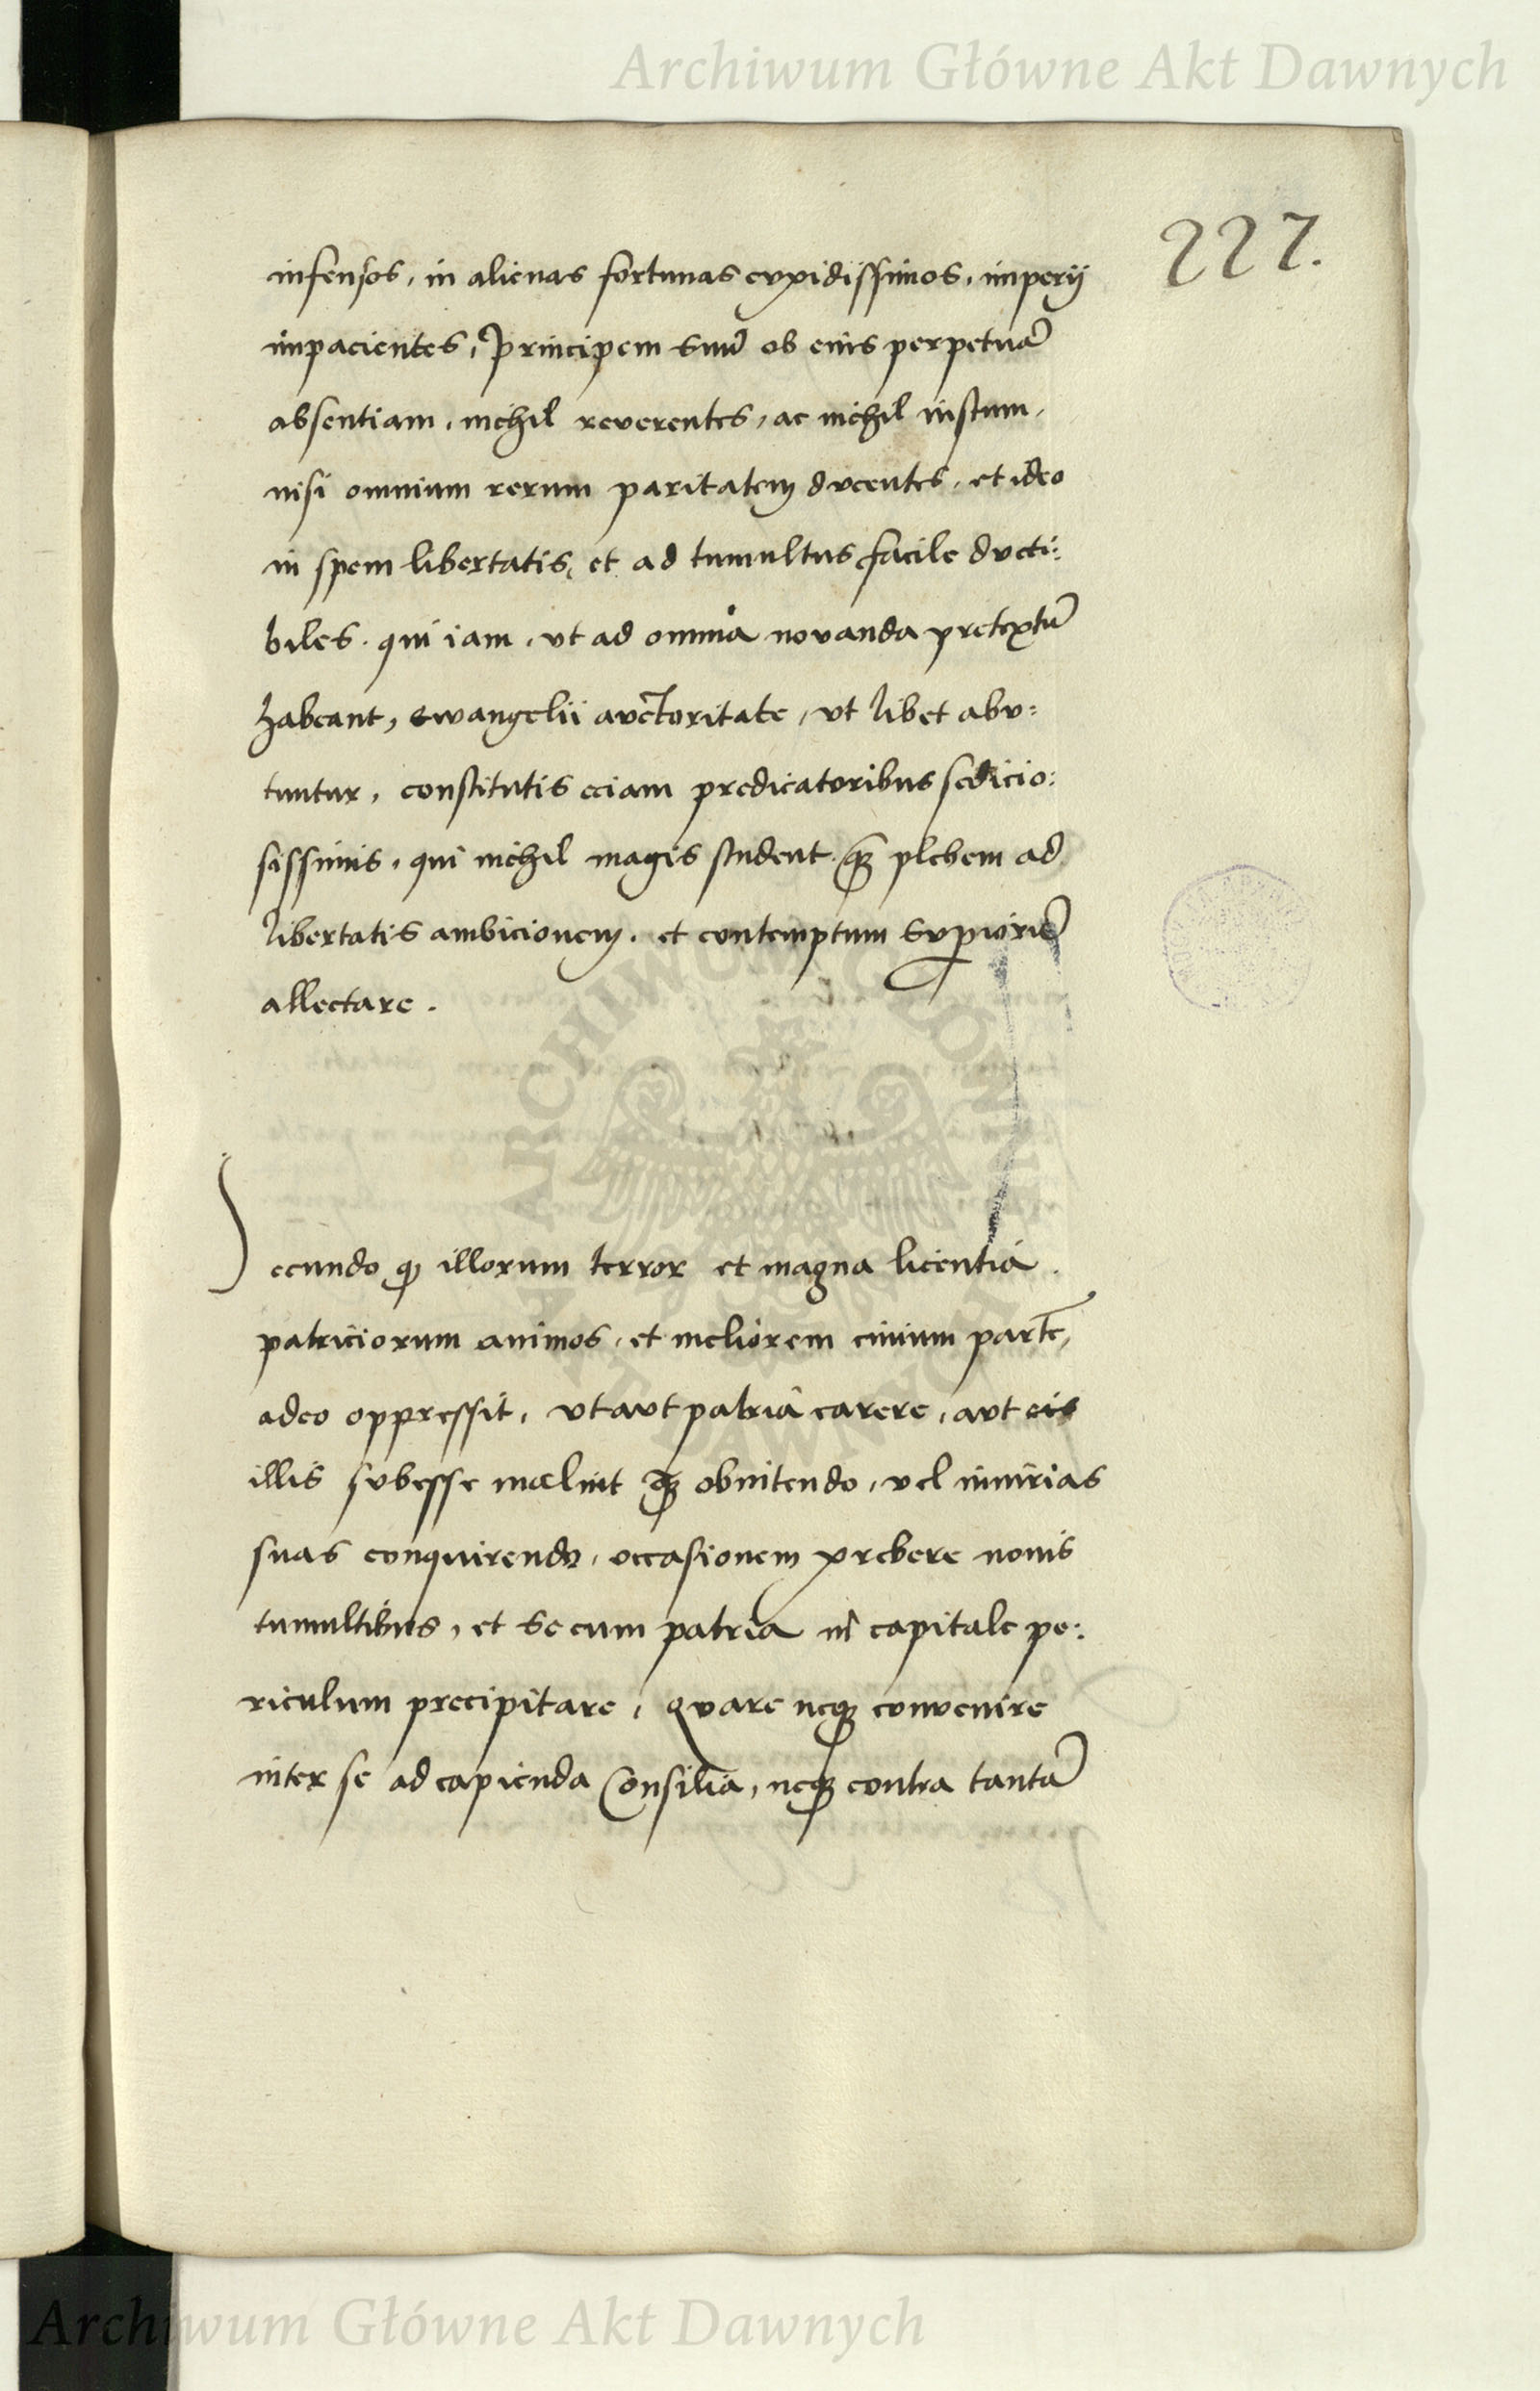 Archiwum Główne Akt Dawnych
227.
infensos, in alienas fortunas cupidissimos, imperij
impacientes, Principem suũ ob eius perpetuã
absentiam, nichil reverentes, ac nichil iustum,
nisi omnium rerum paritatem ducentes, et ideo
in spem libertatis, et ad tumultus facile ducti:
biles. qui iam, ut ad omnia novanda pretextũ
habeant, ewangelii auctoritate, ut libet abu:
tuntur, constitutis eciam predicatoribus sedicio:
sissimis, qui nichil magis student q̃ plebem ad
libertatis ambicionem, et contemptum superiorũ
allectare.
Secundo q illorum terror et magna licentia
patriciorum animos, et meliorem civium partẽ,
adeo oppressit, ut aut patria carere, aut eis
illis subesse malint q̃ obnitendo, vel iniurias
suas conquirendo, occasionem prebere novis
tumultibus, et se cum patria in capitale pe:
riculum precipitare, Quare neq convenire
inter se ad capienda Consilia, neq contra tantã
ARCHIWUM GŁÓWNE
AKT DAWNYCH
Archiwum Główne Akt Dawnych